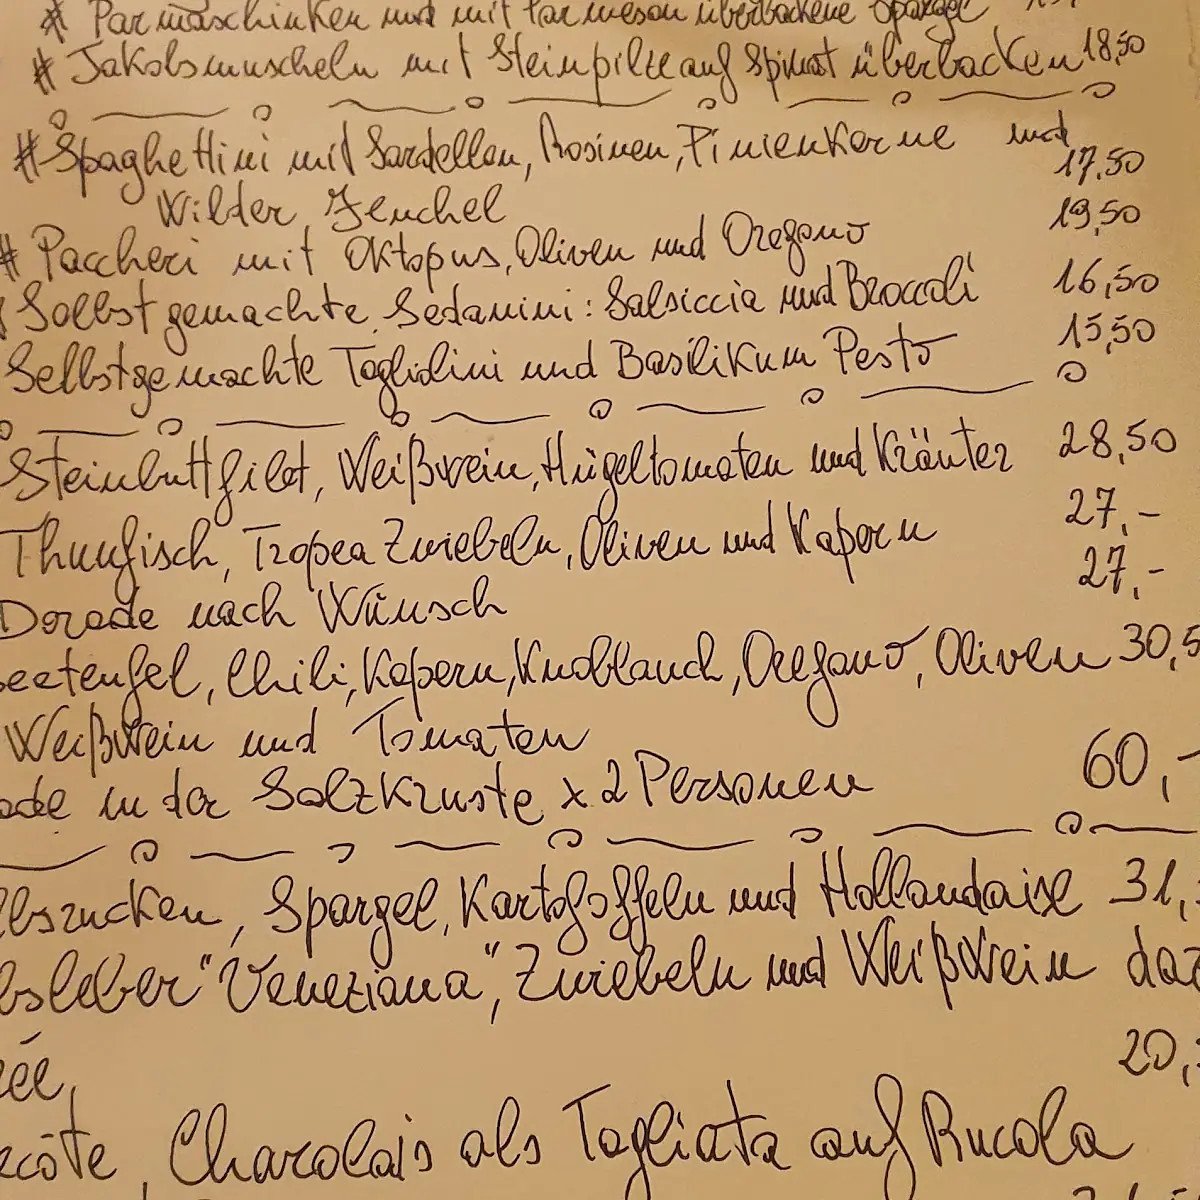 # Parmaschinken und mit Parmesan überbackene Spargel
# Jakobsmuscheln mit Steinpilze auf Spinat überbacken 18,50
# Spaghettini mit Sardellen, Rosinen, Pinienkerne und
Wilder Fenchel 17,50
# Paccheri mit Oktopus, Oliven und Oregano 19,50
Selbstgemachte Sedanini: Salsiccia und Broccoli 16,50
Selbstgemachte Tagliolini und Basilikum Pesto 15,50
Steinbuttfilet, Weißwein, Hügeltomaten und Kräuter 28,50
Thunfisch, Tropea Zwiebeln, Oliven und Kapern 27,-
Dorade nach Wunsch 27,-
eeteufel, Chili, Kapern, Knoblauch, Oregano, Oliven 30,5
Weißwein und Tomaten
ade in der Salzkruste x 2 Personen 60,-
lbsrücken, Spargel, Kartoffeln und Hollandaise 31,-
bsleber "Veneziana", Zwiebeln und Weißwein daz
rée, 20,-
ecôte, Charolais als Tagliata auf Rucola